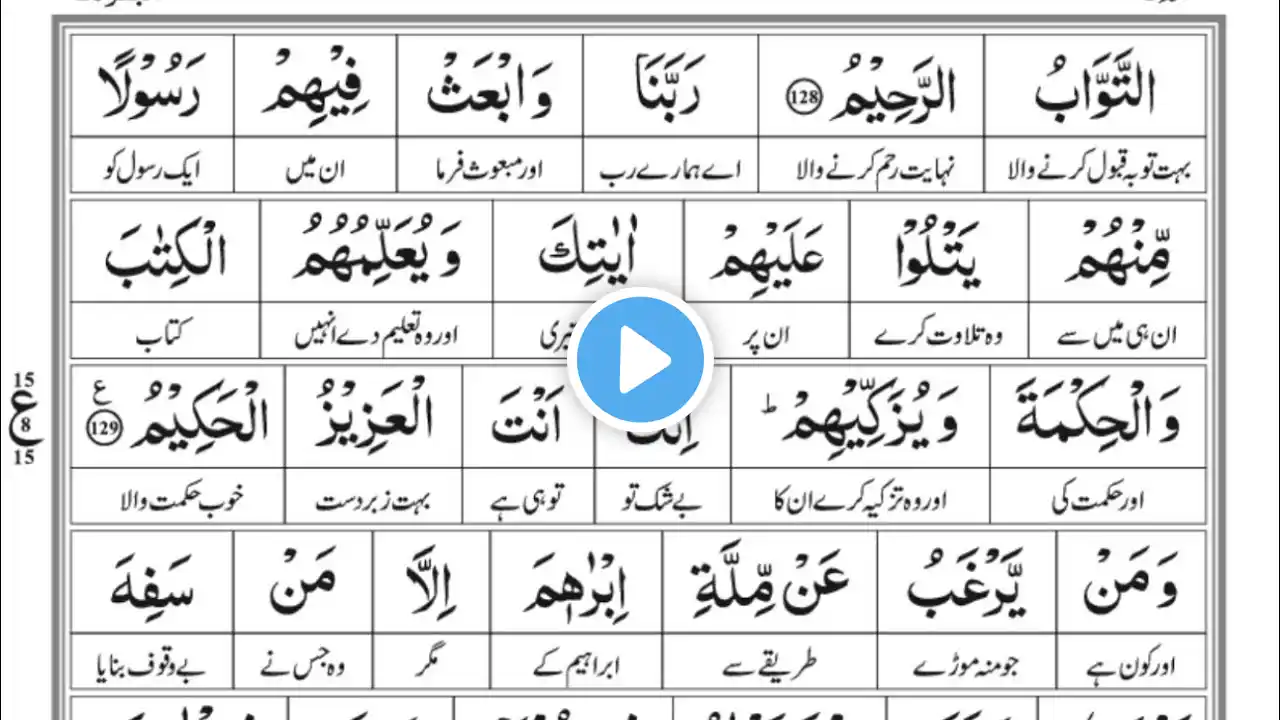 التَّوَّابُ الرَّحِيْمُ 128 رَبَّنَا وَابْعَثْ فِيْهِمْ رَسُوْلًا
بہت توبہ قبول کرنے والا نہایت رحم کرنے والا اے ہمارے رب اور مبعوث فرما ان میں ایک رسول کو
مِّنْهُمْ يَتْلُوْا عَلَيْهِمْ اٰيٰتِكَ وَيُعَلِّمُهُمُ الْكِتٰبَ
ان ہی میں سے وہ تلاوت کرے ان پر اور وہ تعلیم دے انہیں کتاب
وَالْحِكْمَةَ وَيُزَكِّيْهِمْ ؕ اَنْتَ الْعَزِيْزُ الْحَكِيْمُ 129 ع
15 ع 8 15
اور حکمت کی اور وہ تزکیہ کرے ان کا بے شک تو تو ہی ہے بہت زبردست خوب حکمت والا
وَمَنْ يَّرْغَبُ عَنْ مِّلَّةِ اِبْرٰهٖمَ اِلَّا مَنْ سَفِهَ
اور کون ہے جو منہ موڑے طریقے سے ابراہیم کے مگر وہ جس نے بے وقوف بنایا